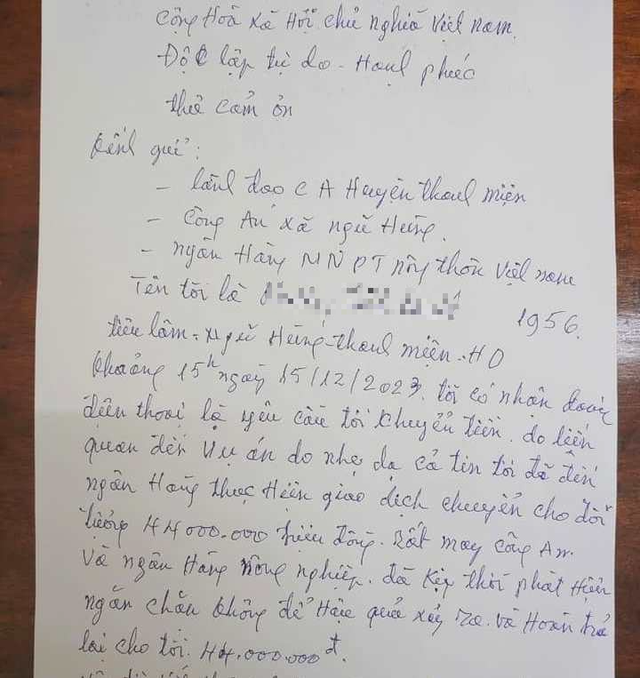 Cộng Hoà Xã Hội chủ nghĩa Việt nam.
Độc lập tự do - Hạnh phúc
thư cảm ơn
Kính gửi:
- Lãnh đạo C A Huyện thanh miện
- Công An xã ngũ Hùng.
- ngân Hàng NN PT nông thôn Việt nam
Tên tôi là 1956.
tiêu lâm - ngũ Hùng - thanh miện - HD
khoảng 15h ngày 15/12/2023. tôi có nhân được
điện thoại lạ yêu cầu tôi chuyển tiền. do liên
quan đến vụ án do nhẹ dạ cả tin tôi đã đến
ngân Hàng thực Hiện giao dịch chuyển cho đối
tượng 44.000.000 triệu đồng. Rất may công An.
Và ngân Hàng nông nghiệp. đã kịp thời phát Hiện
ngăn chặn không để Hậu quả xảy ra. và Hoàn trả
lại cho tôi. 44.000.000đ.